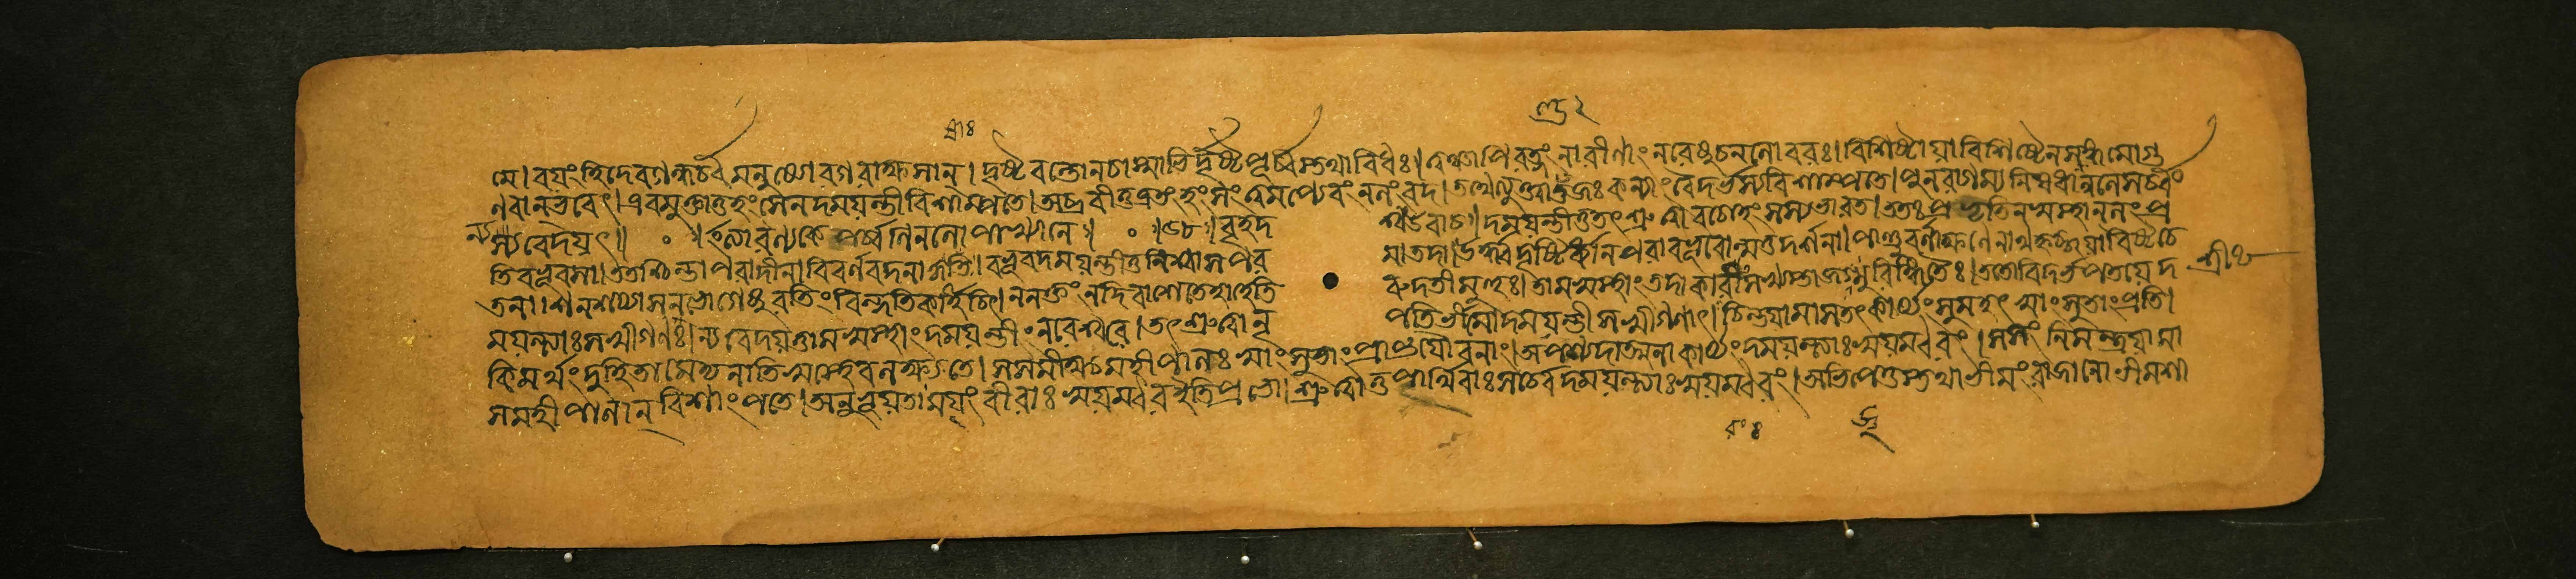 মে।বয়ংহিদেবগন্ধর্ব্বমনুষ্যোরগরাক্ষসান্।দৃষ্টবন্তোনচাস্মাভির্দৃষ্টপূর্ব্বস্তথাবিধঃ।ত্বঞ্চাপিরত্নংনারীণাংনরেষুচনলোবরঃ।বিশিষ্টায়াবিশিষ্টেনসঙ্গমোগু
ণবানভবেৎ।এবমুক্তাতুহংসেনদময়ন্তীবিশাম্পতে।অব্রবীত্তত্রতংহংসংত্বমপ্যেবংনলংবদ।তথেত্যুক্ত্বাণ্ডজঃকন্যাংবৈদর্ভস্যবিশাম্পতে।পুনরাগম্যনিষধান্নলেসর্ব্বং
ন্যবেদয়ৎ॥ ॰ ॥ইত্যারণ্যকেপর্ব্বণিনলোপাখ্যানে॥ ॰ ॥বৃহদ শ্বউবাচ।দময়ন্তীতুতৎশ্রুত্বাবচোহংসস্যভারত।ততঃপ্রভৃতিনস্বস্থানলংপ্র
তিবভূবসা।ততশ্চিন্তাপরাদীনাবিবর্ণবদনাকৃশা।বভূবদময়ন্তীতুনিশ্বাসপর মাতদা।ঊর্দ্ধদৃষ্টির্ধ্যানপরাবভূবোন্মত্তদর্শনা।পাণ্ডুবর্ণাক্ষণেনাথহৃচ্ছয়াবিষ্টচে
তনা।নশয্যাসনভোগেষুরতিংবিন্দতিকর্হিচিৎ।ননক্তংনদিবাশেতেহাহেতি রুদতীমুহুঃ।তামস্বস্থাংতদাকারাংসখ্যস্তাজজ্ঞুরিঙ্গিতৈঃ।ততোবিদর্ভপতয়েদ
ময়ন্ত্যাঃসখীগণঃ।ন্যবেদয়ত্তামস্বস্থাংদময়ন্তীংনরেশ্বরে।তৎশ্রুত্বানৃ পতির্ভীমোদময়ন্তীসখীগণাৎ।চিন্তয়ামাসতৎকার্য্যংসুমহৎস্বাংসুতাংপ্রতি।
কিমর্থংদুহিতামেদ্যনাতিস্বস্থেবলক্ষ্যতে।সসমীক্ষ্যমহীপালঃস্বাংসুতাংপ্রাপ্তযৌবনাং।অপশ্যদাত্মনাকার্য্যংদময়ন্ত্যাঃস্বয়ম্বরং।সসংনিমন্ত্রয়ামা
সমহীপালান্বিশাংপতে।অনুভূয়তাময়ংবীরাঃস্বয়ম্বরইতিপ্রভো।শ্রুত্বাতুপার্থিবাঃসর্ব্বেদময়ন্ত্যাঃস্বয়ম্বরং।অভিপেতুস্তথাভীমংরাজানোভীমশা